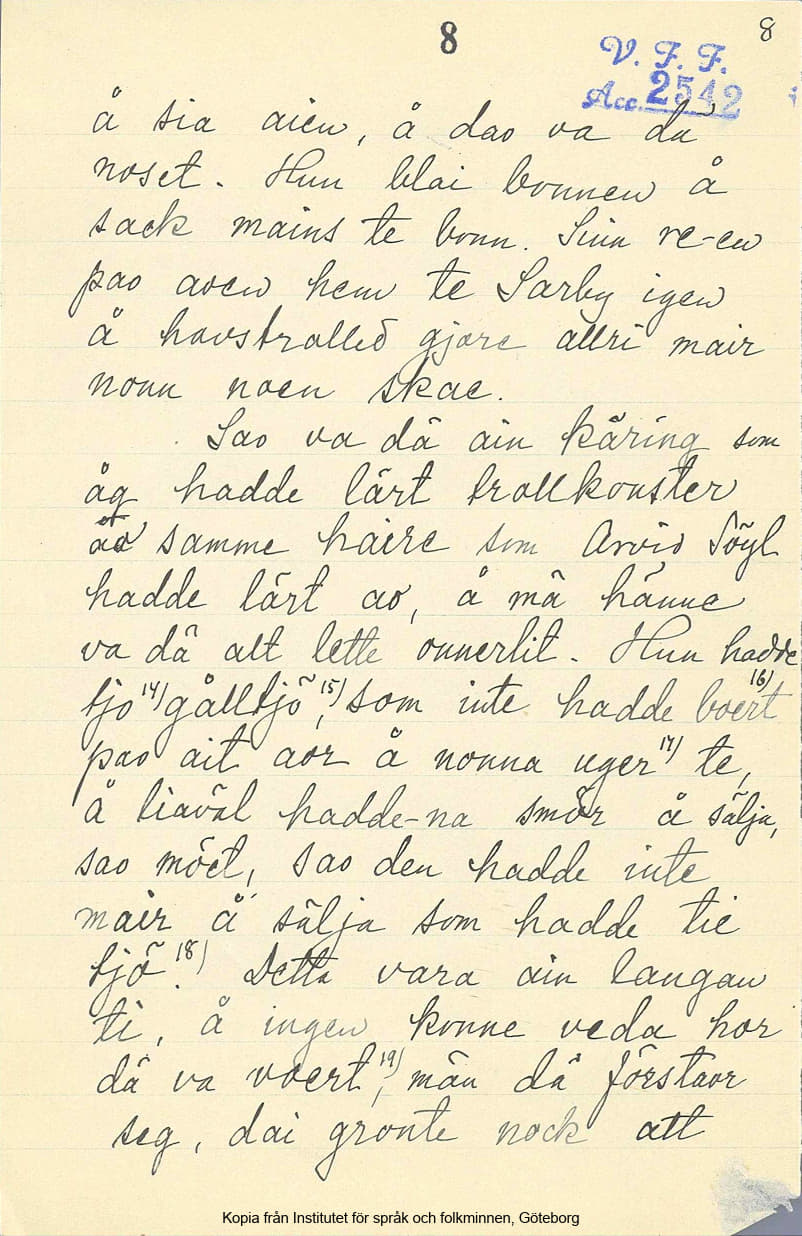 8
8
V. F. F.
Acc. 2542
å sia aien, å dao va du
noset. Hun blai bonnen å
sack mains te bonn. Sinn re-en
pao aoen hem te Sarby igen
å havstralled gjore allri mair
nonn noen skae.
Sao va dä ain käring som
åg hadde lärt trollkonster
samme haire som Arvid Söyl
hadde lärt ao, å mä hänne
va dä alt lette onnerlit. Hun hadde
tjo 14) gålltjö 15), som inte hadde boert 16)
pao ait aor å nonna uger 17) te,
å liaväl hadde-na smör å sälja,
sao möet, sao den hadde inte
mair å sälja som hadde tie
tjö 18)! Detta vara ain langan
ti, å ingen konne veda hor
dä va voert 19), män dä förstaor
seg, dai gronte nock att
Kopia från Institutet för språk och folkminnen, Göteborg